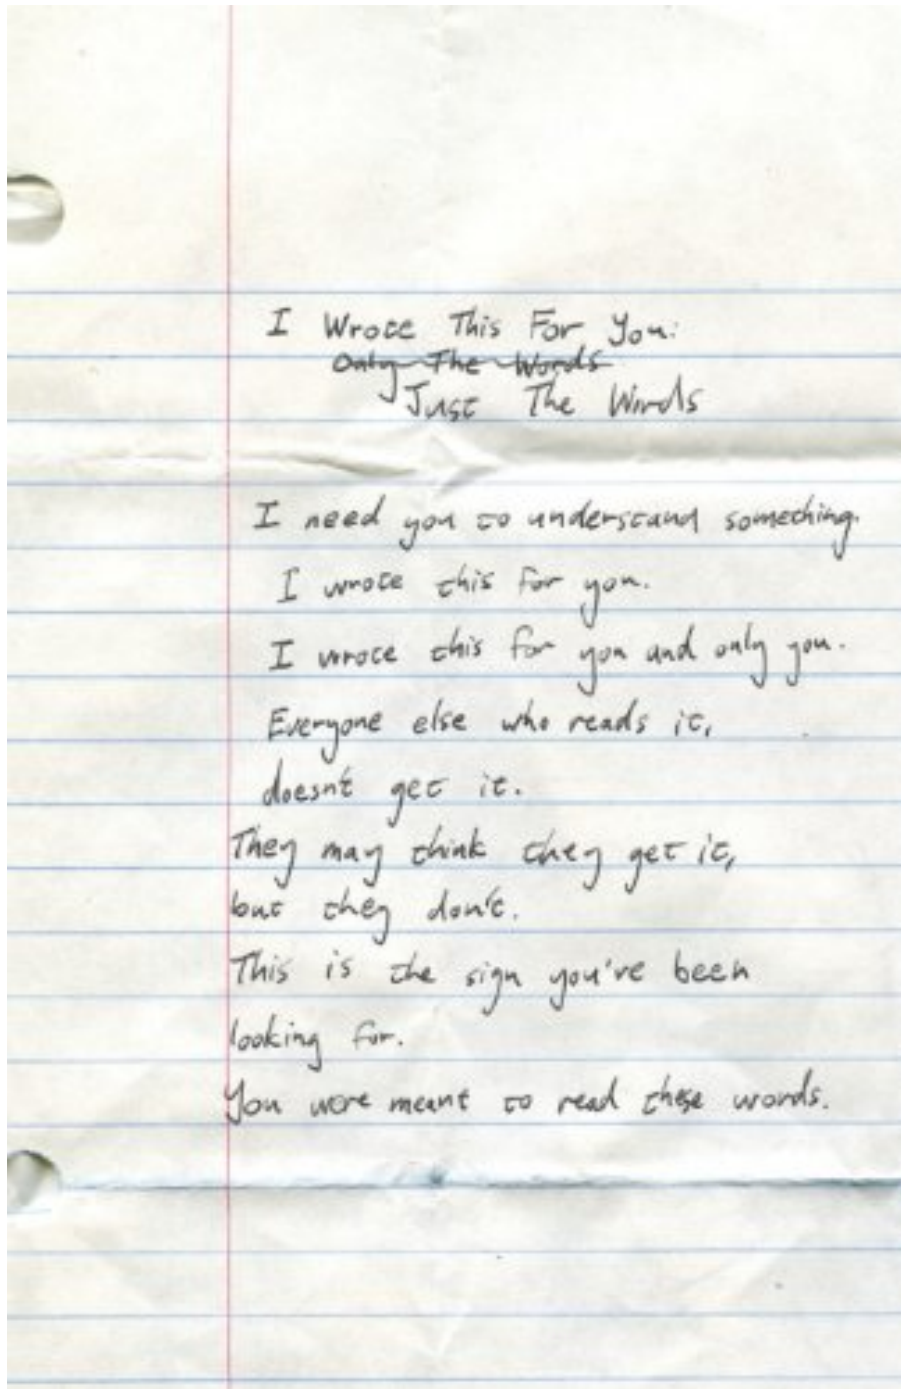 I Wrote This For You:
Only The Words
Just The Words
I need you to understand something.
I wrote this for you.
I wrote this for you and only you.
Everyone else who reads it,
doesn't get it.
They may think they get it,
but they don't.
This is the sign you've been
looking for.
You were meant to read these words.